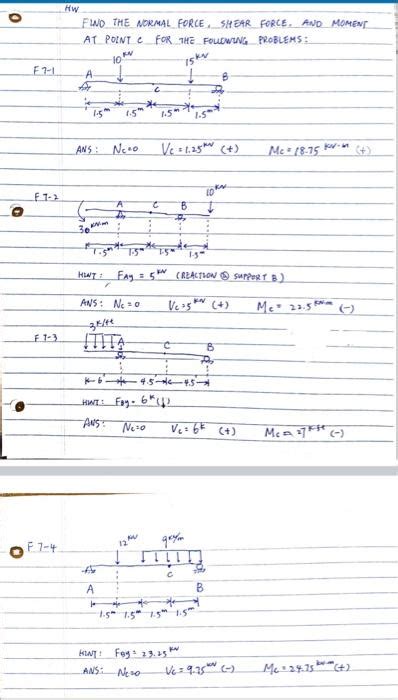 HW
FIND THE NORMAL FORCE, SHEAR FORCE, AND MOMENT
AT POINT C FOR THE FOLLOWING PROBLEMS:
F7-1
10 KN
15 KN
A
B
C
1.5m 1.5m 1.5m 1.5m
ANS: Nc=0 Vc = 1.25 KN (+) Mc = 18.75 KN-m (+)
F7-2
10 KN
A C B
30 KN-m
1.5m 1.5m 1.5m 1.5m
HINT: FAy = 5 KN (REACTION @ SUPPORT B)
ANS: Nc = 0 Vc = 5 KN (+) Mc = 22.5 KN-m (-)
F7-3
3K/ft
A C B
6' 4.5' 4.5'
HINT: FBy = 6K (↓)
ANS: Nc=0 Vc = 6K (+) Mc = 27 K-ft (-)
F7-4
12 KN
9 KN/m
C
A B
1.5m 1.5m 1.5m 1.5m
HINT: FBy = 23.25 KN
ANS: Nc=0 Vc = 9.75 KN (-) Mc = 24.75 KN-m (+)